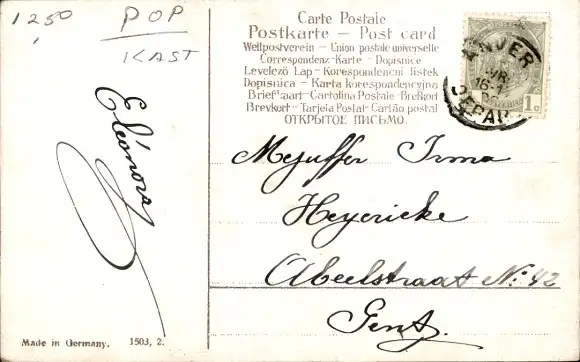 1250 POP
KAST
Eléonora
Made in Germany. 1503, 2.
Carte Postale
Postkarte – Post card
Weltpostverein – Union postale universelle
Correspondenz-Karte – Dopisnice
Levelező Lap – Korespondencni listek
Dopisnica – Karta korespondencyjna
Briefkaart – Cartolina Postale Brefkort
Brevkort – Tarjeta Postal – Cartão postal
ОТКРЫТОЕ ПИСЬМО.
ANVER
16-1
DEPAR
1c
Mejuffer Irma
Heyericke
Abeelstraat No: 42
Gent.